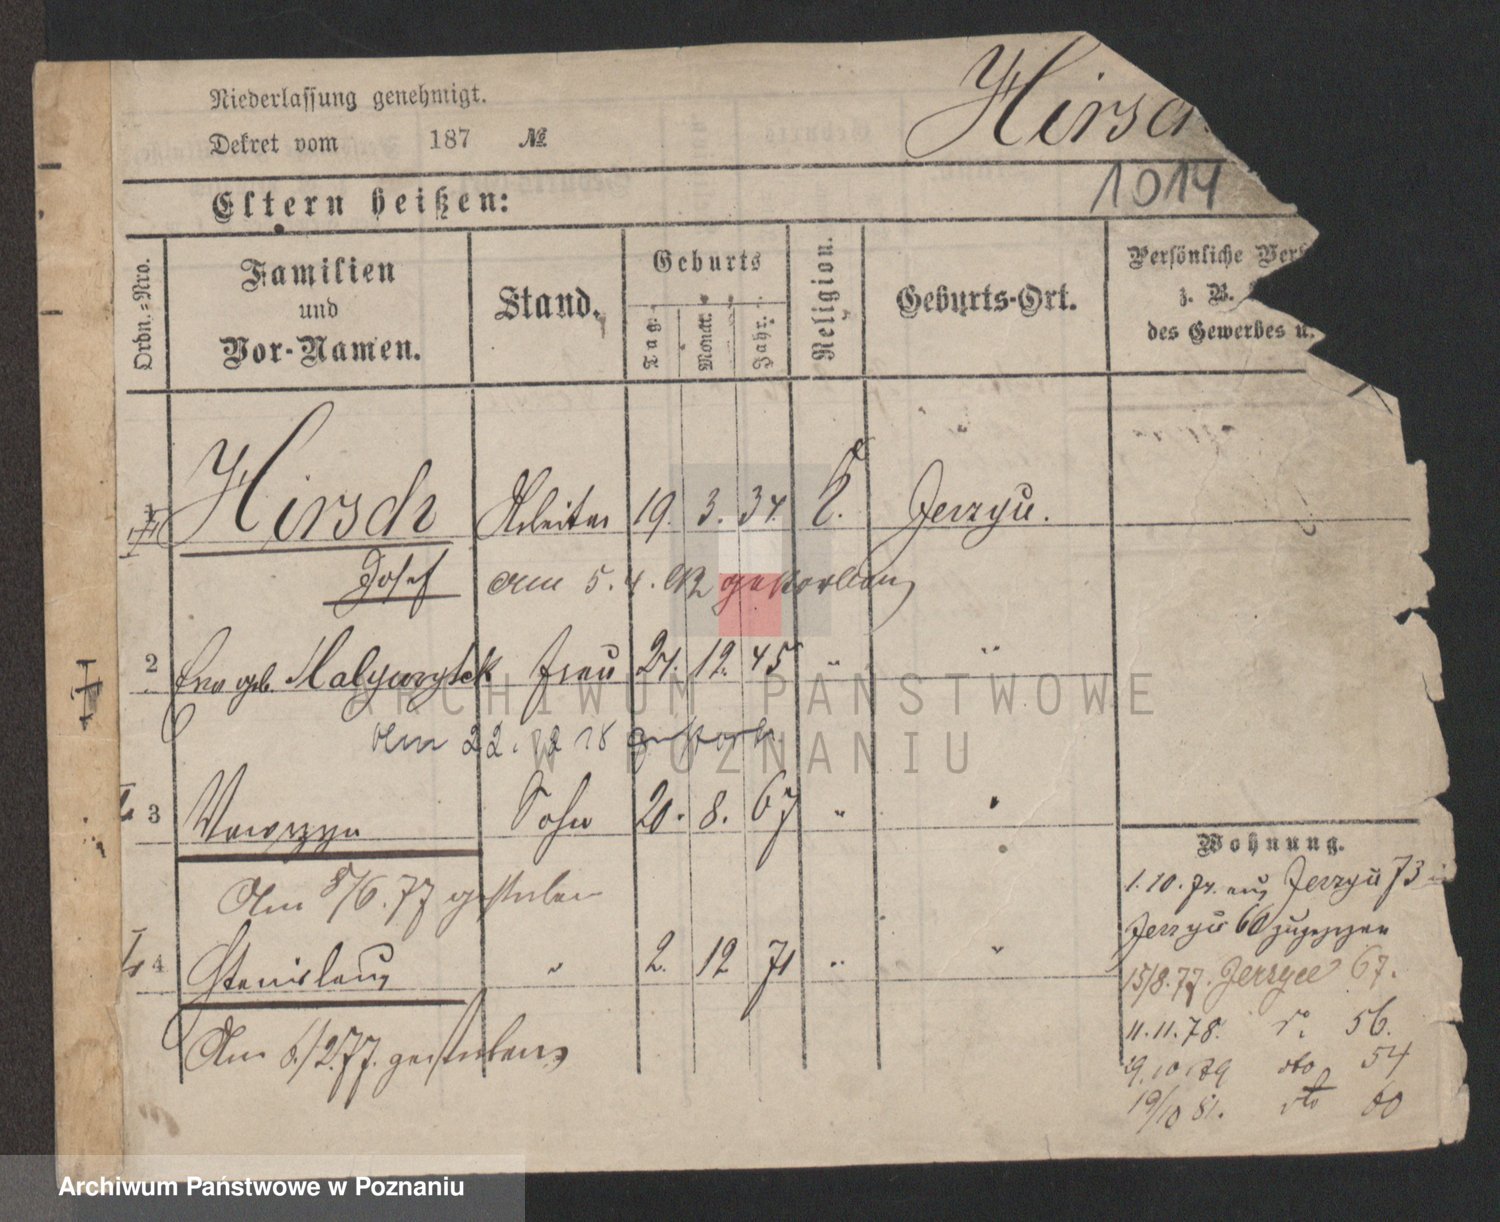 Niederlassung genehmigt.
Dekret vom 187 №
Hirsch
1014
Eltern heißen:
Ordn.-Nro.
Familien und Vor-Namen.
Stand.
Geburts
Tag. Monat. Jahr.
Religion.
Geburts-Ort.
Persönliche
z. B.
des Gewerbes u.
1 Hirsch Arbeiter 19. 3. 34. k. Jerzyce.
Josef am 5. 4. gestorben
2 Eva geb. Frau 24. 12. 45 " "
am 22. 12 18 gestorb.
3 Wawrzyn Sohn 20. 8. 67 " "
Am 8/6. 77 gestorben
4 Stanislaus " 2. 12 71 " "
Am 6./2 77. gestorben
Wohnung.
1. 10. 74. aus Jerzyce 73 in
Jerzyce 60 zugezogen
15/8. 77. Jerzyce 67.
11. 11. 78. do 56.
9. 10 79 dto 54
19/10 81. dto 60
ARCHIWUM PAŃSTWOWE
W POZNANIU
Archiwum Państwowe w Poznaniu